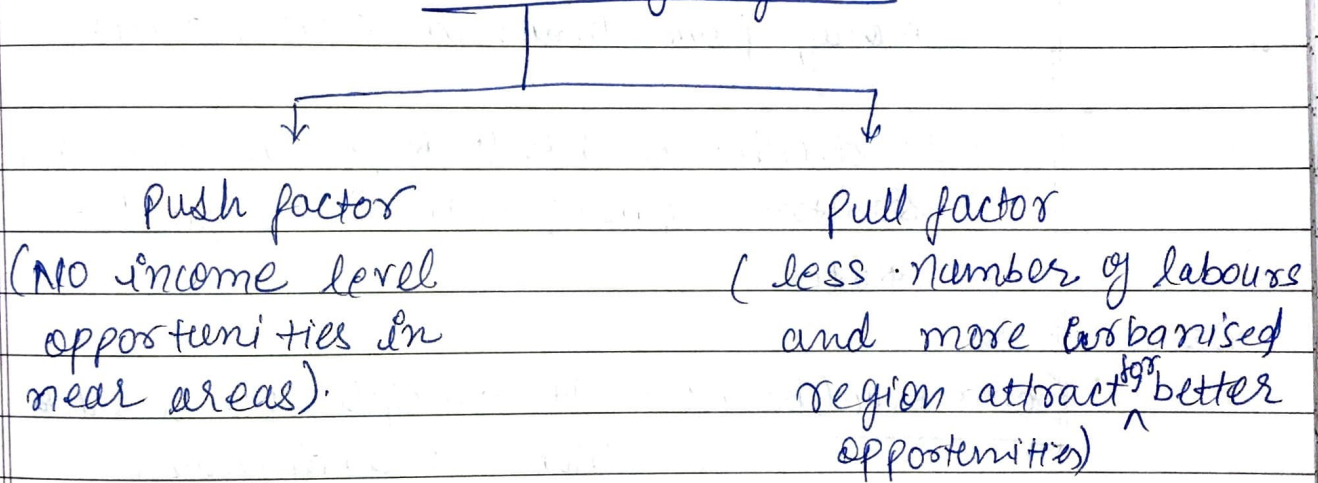 Push factor
(No income level
opportuni ties in
near areas).
Pull factor
( less number of labours
and more urbanised
region attract for better
opportenities)